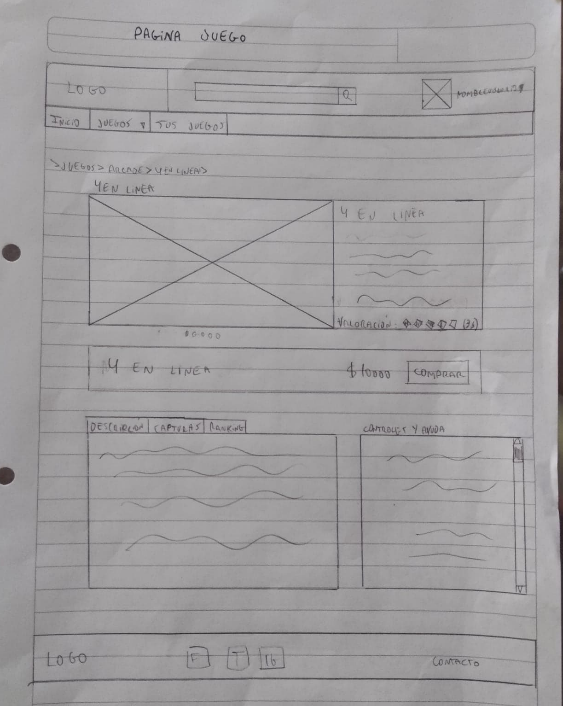 PAGINA JUEGO
LOGO
NOMBREUSUARIO
INICIO JUEGOS TUS JUEGOS
>JUEGOS> ARCADE> 4 EN LINEA>
4 EN LINEA
4 EN LINEA
VALORACION: (35)
4 EN LINEA $10000 COMPRAR
DESCRIPCION CAPTURAS RANKING CONTROLES Y AYUDA
LOGO F T IG CONTACTO